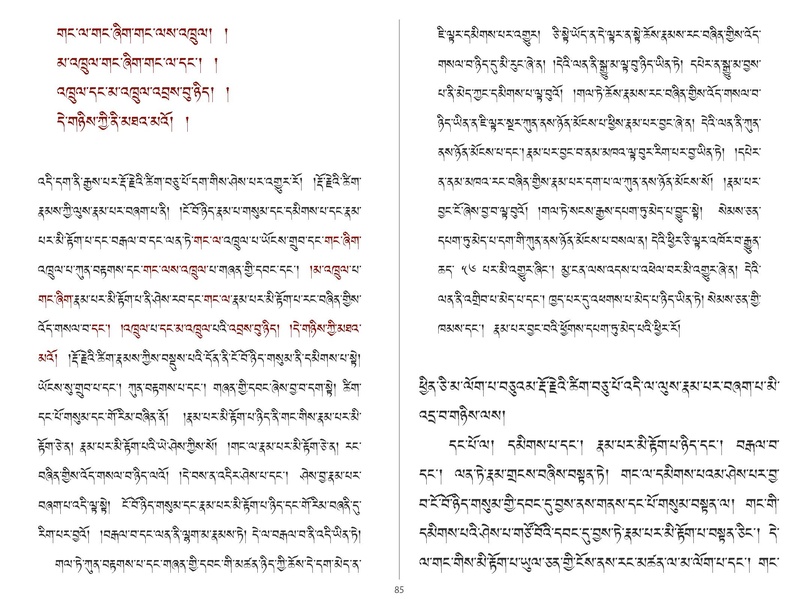 གང་ལ་གང་ཞིག་གང་ལས་འཁྲུལ། །
མ་འཁྲུལ་གང་ཞིག་གང་ལ་དང་། །
འཁྲུལ་དང་མ་འཁྲུལ་འབྲས་བུ་ཉིད། །
དེ་གཉིས་ཀྱི་ནི་མཐའ་མའོ། །
འདི་དག་ནི་རྒྱས་པར་རྡོ་རྗེའི་ཚིག་བཅུ་པོ་དག་གིས་ཤེས་པར་འགྱུར་རོ། །རྡོ་རྗེའི་ཚིག་
རྣམས་ཀྱི་ལུས་རྣམ་པར་བཞག་པ་ནི། །ངོ་བོ་ཉིད་རྣམ་པ་གསུམ་དང་དམིགས་པ་དང་རྣམ་
པར་མི་རྟོག་པ་དང་བརྒལ་བ་དང་ལན་ཏེ་གང་ལ་འཁྲུལ་པ་ཡོངས་གྲུབ་དང་གང་ཞིག་
འཁྲུལ་པ་ཀུན་བརྟགས་དང་གང་ལས་འཁྲུལ་པ་གཞན་གྱི་དབང་དང་། །མ་འཁྲུལ་པ་
གང་ཞིག་རྣམ་པར་མི་རྟོག་པ་ནི་ཤེས་རབ་དང་གང་ལ་རྣམ་པར་མི་རྟོག་པ་རང་བཞིན་གྱིས་
འོད་གསལ་བ་དང་། །འཁྲུལ་པ་དང་མ་འཁྲུལ་པའི་འབྲས་བུ་ཉིད། །དེ་གཉིས་ཀྱི་མཐའ་
མའོ། །རྡོ་རྗེའི་ཚིག་རྣམས་ཀྱིས་བསྡུས་པའི་དོན་ནི་ངོ་བོ་ཉིད་གསུམ་ནི་དམིགས་པ་སྟེ།
ཡོངས་སུ་གྲུབ་པ་དང་། ཀུན་བརྟགས་པ་དང་། གཞན་གྱི་དབང་ཞེས་བྱ་བ་དག་སྟེ། ཚིག་
དང་པོ་གསུམ་དང་གོ་རིམ་བཞིན་ནོ། །རྣམ་པར་མི་རྟོག་པ་ཉིད་ནི་གང་གིས་རྣམ་པར་མི་
རྟོག་ཅེ་ན། རྣམ་པར་མི་རྟོག་པའི་ཡེ་ཤེས་ཀྱིས་སོ། །གང་ལ་རྣམ་པར་མི་རྟོག་ཅེ་ན། རང་
བཞིན་གྱིས་འོད་གསལ་བ་ཉིད་ལའོ། །དེ་བས་ན་འདིར་ཤེས་པ་དང་། ཤེས་བྱ་རྣམ་པར་
བཞག་པ་འདི་ལྟ་སྟེ། ངོ་བོ་ཉིད་གསུམ་དང་རྣམ་པར་མི་རྟོག་པ་ཉིད་དང་གོ་རིམ་བཞིན་དུ་
རིག་པར་བྱའོ། །བརྒལ་བ་དང་ལན་ནི་ལྷག་མ་རྣམས་ཏེ། དེ་ལ་བརྒལ་བ་ནི་འདི་ཡིན་ཏེ།
གལ་ཏེ་ཀུན་བརྟགས་པ་དང་གཞན་གྱི་དབང་གི་མཚན་ཉིད་ཀྱི་ཆོས་དེ་དག་མེད་ན་
ཇི་ལྟར་དམིགས་པར་འགྱུར། ཅི་སྟེ་ཡོད་ན་དེ་ལྟར་ན་སྟེ་ཆོས་རྣམས་རང་བཞིན་གྱིས་འོད་
གསལ་བ་ཉིད་དུ་མི་རུང་ཞེ་ན། །དེའི་ལན་ནི་སྒྱུ་མ་ལྟ་བུ་ཉིད་ཡིན་ཏེ། དཔེར་ན་སྒྱུ་མ་བྱས་
པ་ནི་མེད་ཀྱང་དམིགས་པ་ལྟ་བུའོ། །གལ་ཏེ་ཆོས་རྣམས་རང་བཞིན་གྱིས་འོད་གསལ་བ་
ཉིད་ཡིན་ན་ཇི་ལྟར་སྔར་ཀུན་ནས་ཉོན་མོངས་པ་ཕྱིས་རྣམ་པར་བྱང་ཞེ་ན། དེའི་ལན་ནི་ཀུན་
ནས་ཉོན་མོངས་པ་དང་། རྣམ་པར་བྱང་བ་ནམ་མཁའ་ལྟ་བུར་རིག་པར་བྱ་ཡིན་ཏེ། །དཔེར་
ན་ནམ་མཁའ་རང་བཞིན་གྱིས་རྣམ་པར་དག་པ་ལ་ཀུན་ནས་ཉོན་མོངས་སོ། །རྣམ་པར་
བྱང་ངོ་ཞེས་བྱ་བ་ལྟ་བུའོ། །གལ་ཏེ་སངས་རྒྱས་དཔག་ཏུ་མེད་པ་བྱུང་སྟེ། སེམས་ཅན་
དཔག་ཏུ་མེད་པ་དག་གི་ཀུན་ནས་ཉོན་མོངས་པ་བསལ་ན། དེའི་ཕྱིར་ཅི་ལྟར་འཁོར་བ་རྒྱུན་
ཆད་ ༥༦ པར་མི་འགྱུར་ཞིང་། མྱ་ངན་ལས་འདས་པ་འཕེལ་བར་མི་འགྱུར་ཞེ་ན། དེའི་
ལན་ནི་འགྲིབ་པ་མེད་པ་དང་། ཁྱད་པར་དུ་འཕགས་པ་མེད་པ་ཉིད་ཡིན་ཏེ། སེམས་ཅན་གྱི་
ཁམས་དང་། རྣམ་པར་བྱང་བའི་ཕྱོགས་དཔག་ཏུ་མེད་པའི་ཕྱིར་རོ།
ཕྱིན་ཅི་མ་ལོག་པ་བཅུའམ་རྡོ་རྗེའི་ཚིག་བཅུ་པོ་འདི་ལ་ལུས་རྣམ་པར་བཞག་པ་མི་
འདྲ་བ་གཉིས་ལས།
དང་པོ་ལ། དམིགས་པ་དང་། རྣམ་པར་མི་རྟོག་པ་ཉིད་དང་། བརྒལ་བ་
དང་། ལན་ཏེ་རྣམ་གྲངས་བཞིས་བསྟན་ཏེ། གང་ལ་དམིགས་པའམ་ཤེས་པར་བྱ་
བ་ངོ་བོ་ཉིད་གསུམ་གྱི་དབང་དུ་བྱས་ནས་གནས་དང་པོ་གསུམ་བསྟན་ལ། གང་གི་
དམིགས་པའི་ཤེས་པ་གཙོ་བོའི་དབང་དུ་བྱས་ཏེ་རྣམ་པར་མི་རྟོག་པ་བསྟན་ཅིང་། དེ་
ལ་གང་གིས་མི་རྟོག་པ་ཡུལ་ཅན་གྱི་ངོས་ནས་རང་མཚན་ལ་མ་ལོག་པ་དང་། གང་
85